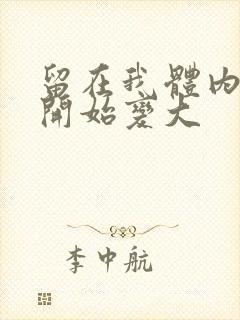 留在我體內
開始變大
李中航